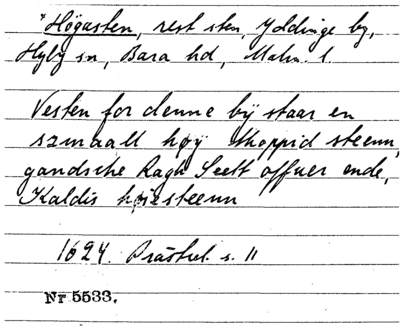 "Högasten, rest sten, Yddinge by,
Hyby sn, Bara hd, Malm. l.
Vesten for denne bÿ staar en
szmaall høÿ thoppid steenn,
gandsche Ragh Seett offuer ende,
Kaldis høiesteenn
1624. Prästrel. s. 11
Nr 5533.